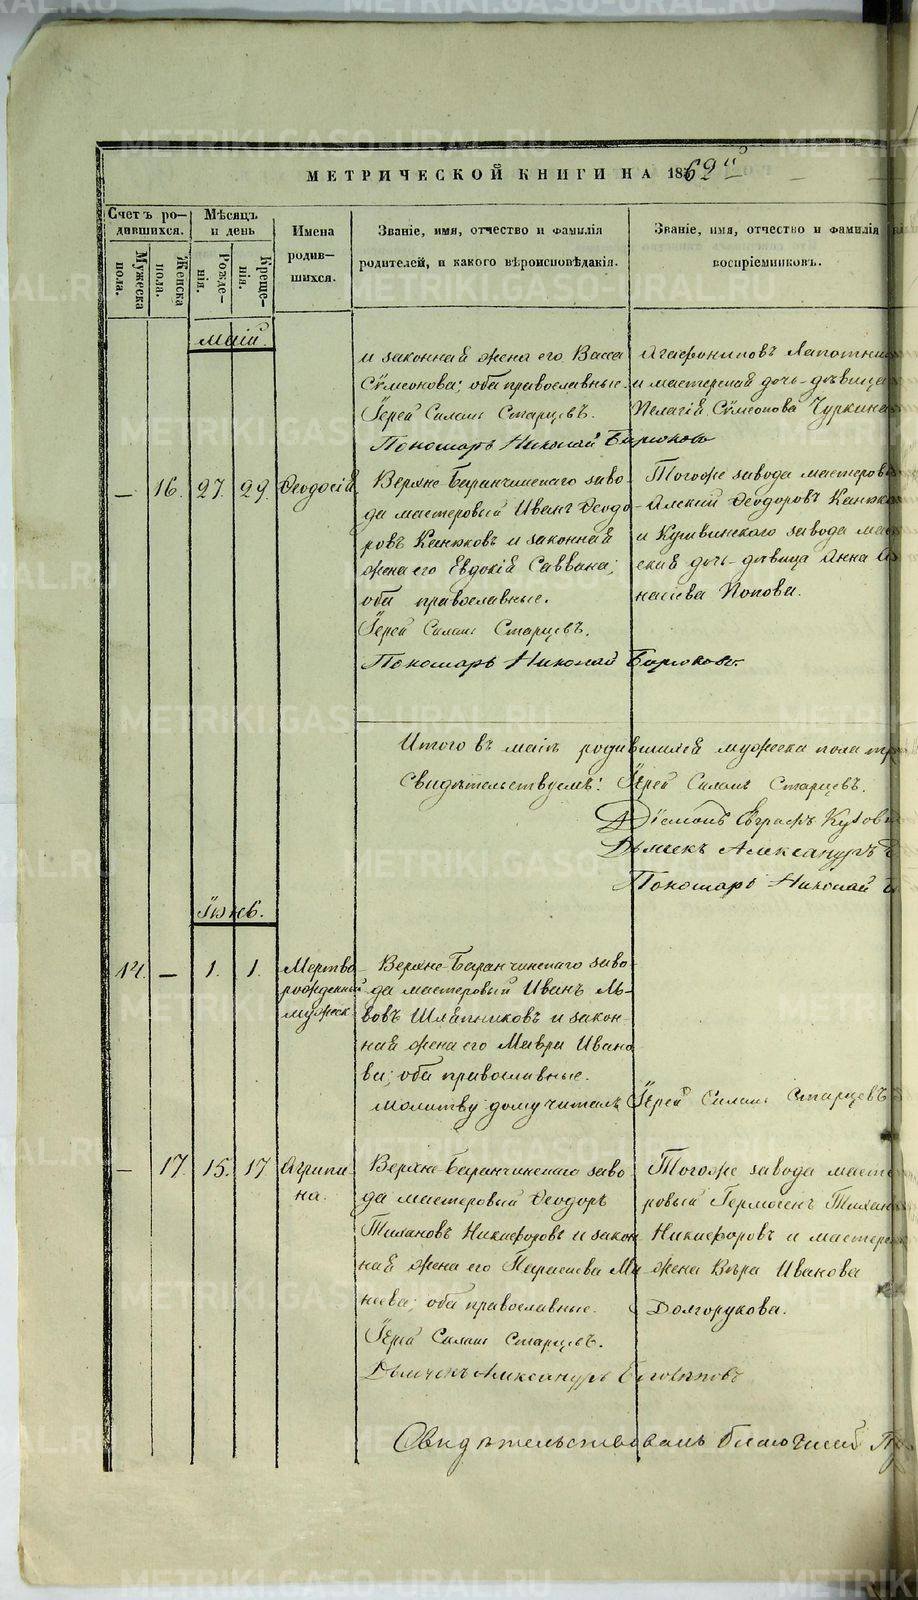 МЕТРИЧЕСКОЙ КНИГИ НА 1862й
Счетъ ро-
дившихся.
Мужеска
пола.
Женска
пола.
Мѣсяцъ
и день
Рожде-
нія.
Креще-
нія.
Имена
родив-
шихся.
Званіе, имя, отчество и фамилія
родителей, и какого вѣроисповѣданія.
Званіе, имя, отчество и фамилія
воспріемниковъ.
Маій.
и законная жена его Васса
Сѵмеонова; оба православные.
Іерей Старцевъ.
Пономарь Николай Бирюковъ
Агафониковъ
и мастерская дочь-дѣвица
Пелагія Сѵмеонова Чуркина
— 16. 27. 29. Ѳеодосія
Верхне-Баранчинскаго заво-
да мастеровый Иванъ Ѳеодо-
ровъ Канюковъ и законная
жена его Евдокія Саввина;
оба православные.
Іерей Старцевъ.
Пономарь Николай Бирюковъ.
Тогоже завода мастеров
Ѳеодоровъ Канюко
и Кушвинскаго завода мас
ская дочь-дѣвица Анна
насьева Попова.
Итого въ маіѣ родившихся мужеска пола
Свидѣтельствуемъ: Іерей Старцевъ.
Діаконъ Евграфъ
Дьячекъ Александръ
Пономарь Николай
Іюнь.
14. — 1. 1. Мертво-
рожденный
мужеск.
Верхне-Баранчинскаго заво-
да мастеровый Иванъ Ль-
вовъ Шляпниковъ и закон-
ная жена его Мавра Ивано
ва; оба православные.
Молитву дому читалъ Іерей Старцевъ
— 17. 15. 17 Агрипи-
на.
Верхне-Баранчинскаго заво
да мастеровый Ѳеодоръ
Никифоровъ и закон
ная жена его Параскева Ми
неева; оба православные.
Іерей Старцевъ.
Дьячекъ Александръ
Тогоже завода масте
ровый Гермогенъ
Никифоровъ и мастерск
жена Вѣра Иванова
Долгорукова.
Свидѣтельствовалъ благочинный
METRIKI.GASO-URAL.RU